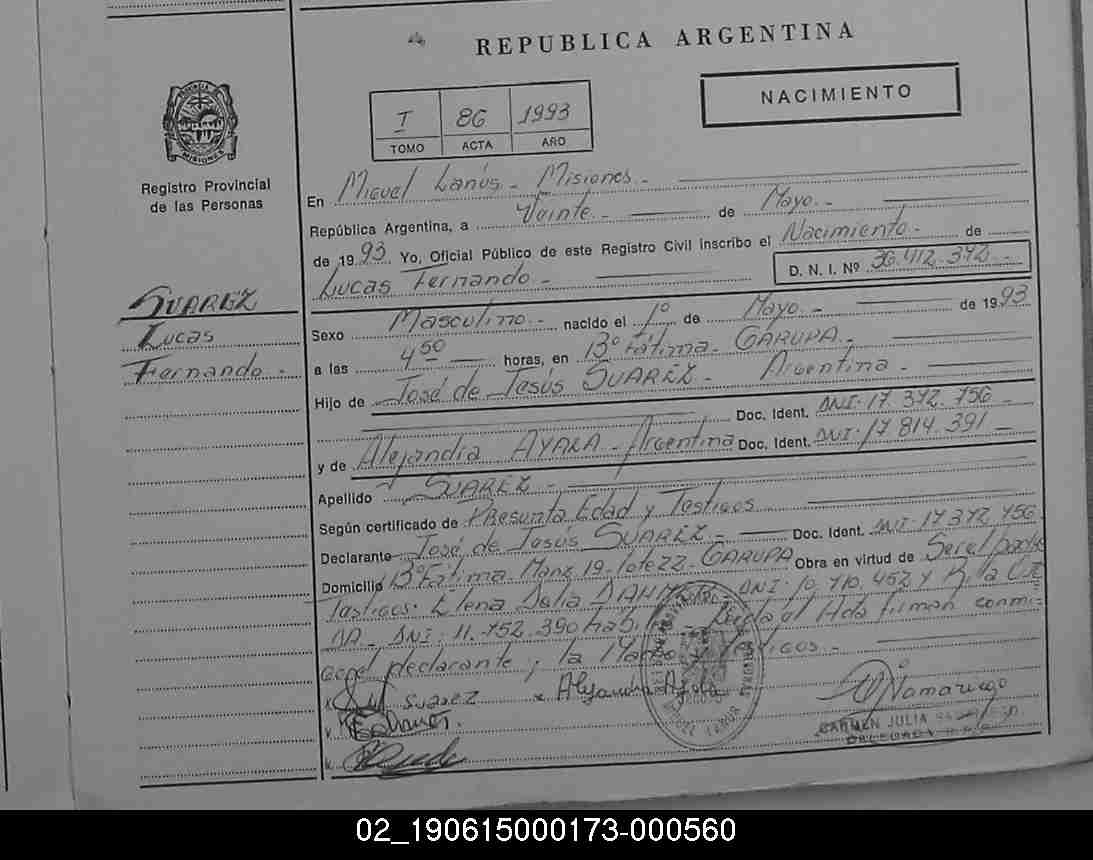 REPUBLICA ARGENTINA
NACIMIENTO
I 86 1993
TOMO ACTA AÑO
PROVINCIA DE MISIONES
Registro Provincial
de las Personas
SUAREZ
Lucas
Fernando.
En Miguel Lanús - Misiones -
República Argentina, a Veinte - de Mayo -
de 1993 Yo, Oficial Público de este Registro Civil inscribo el Nacimiento - de
Lucas Fernando - D. N. I. Nº 36.412.372 -
Sexo Masculino - nacido el 1º de Mayo - de 1993
a las 4 50 horas, en Bº Fátima - GARUPA -
Hijo de José de Jesús SUAREZ - Argentina -
Doc. Ident. DNI. 17.372.756 -
y de Alejandra AYALA - Argentina Doc. Ident. DNI. 17.814.391 -
Apellido SUAREZ -
Según certificado de Presunta Edad y Testigos
Declarante José de Jesús SUAREZ - Doc. Ident. DNI 17 372 756
Domicilio Bº Fátima - Manz 19 - lote 22 - GARUPA Obra en virtud de Ser el padre
Testigos: Elena Delia DNI: 10.710.452 y
NA - DNI: 11.752.390 hábiles - Leída el Acta firman conmi-
go el declarante, la Madre y Testigos -
x Suarez x Alejandra Ayala
CARMEN JULIA
DELEGADA
MIGUEL LANUS
02_190615000173-000560